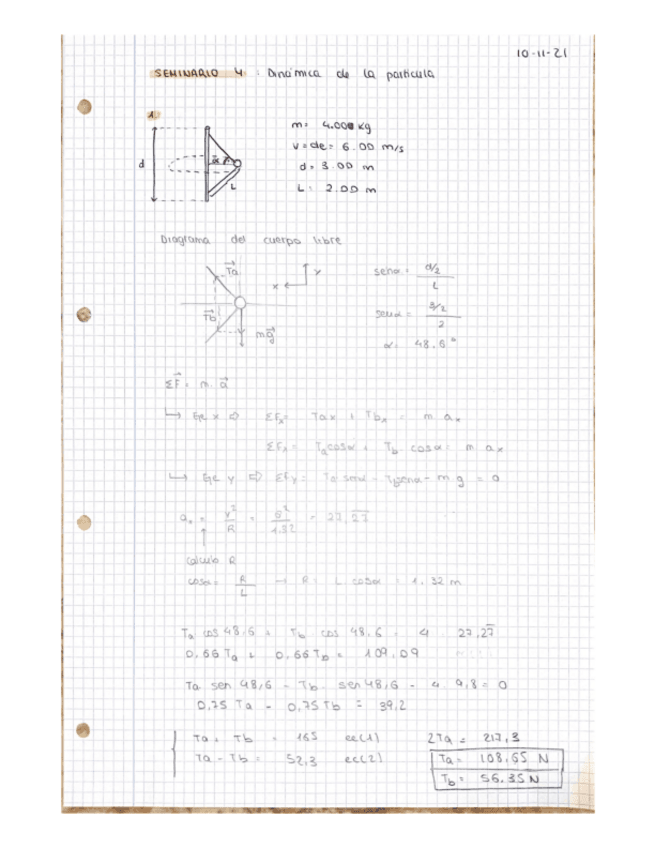 10-11-21
SEMINARIO 4 : Dinámica de la partícula
1.
m= 4.000 kg
v=cte= 6.00 m/s
d= 3.00 m
L= 2.00 m
d
α
L
Diagrama del cuerpo libre
Ta
Tb
mg
x
y
senα = d/2 / L
senα = 3/2 / 2
α= 48,6°
ΣF = m. a
↳ Eje x ⇨ ΣFx= Tax + Tbx = m. ax
ΣFx= Ta cosα + Tb cosα = m ax
↳ Eje y ⇨ ΣFy= Ta senα - Tb senα - m g = 0
ax = v² / R = 6² / 1.32 = 27,27
calculo R
cosα= R / L → R= L cosα = 1.32 m
Ta cos 48,6 + Tb cos 48,6 = 4 . 27,27
0,66 Ta + 0,66 Tb = 109,09
Ta sen 48,6 - Tb . sen 48,6 - 4 . 9,8 = 0
0,75 Ta - 0,75 Tb = 39,2
Ta + Tb = 165 ec(1)
Ta - Tb = 52,3 ec(2)
2Ta = 217,3
Ta= 108,65 N
Tb= 56.35 N